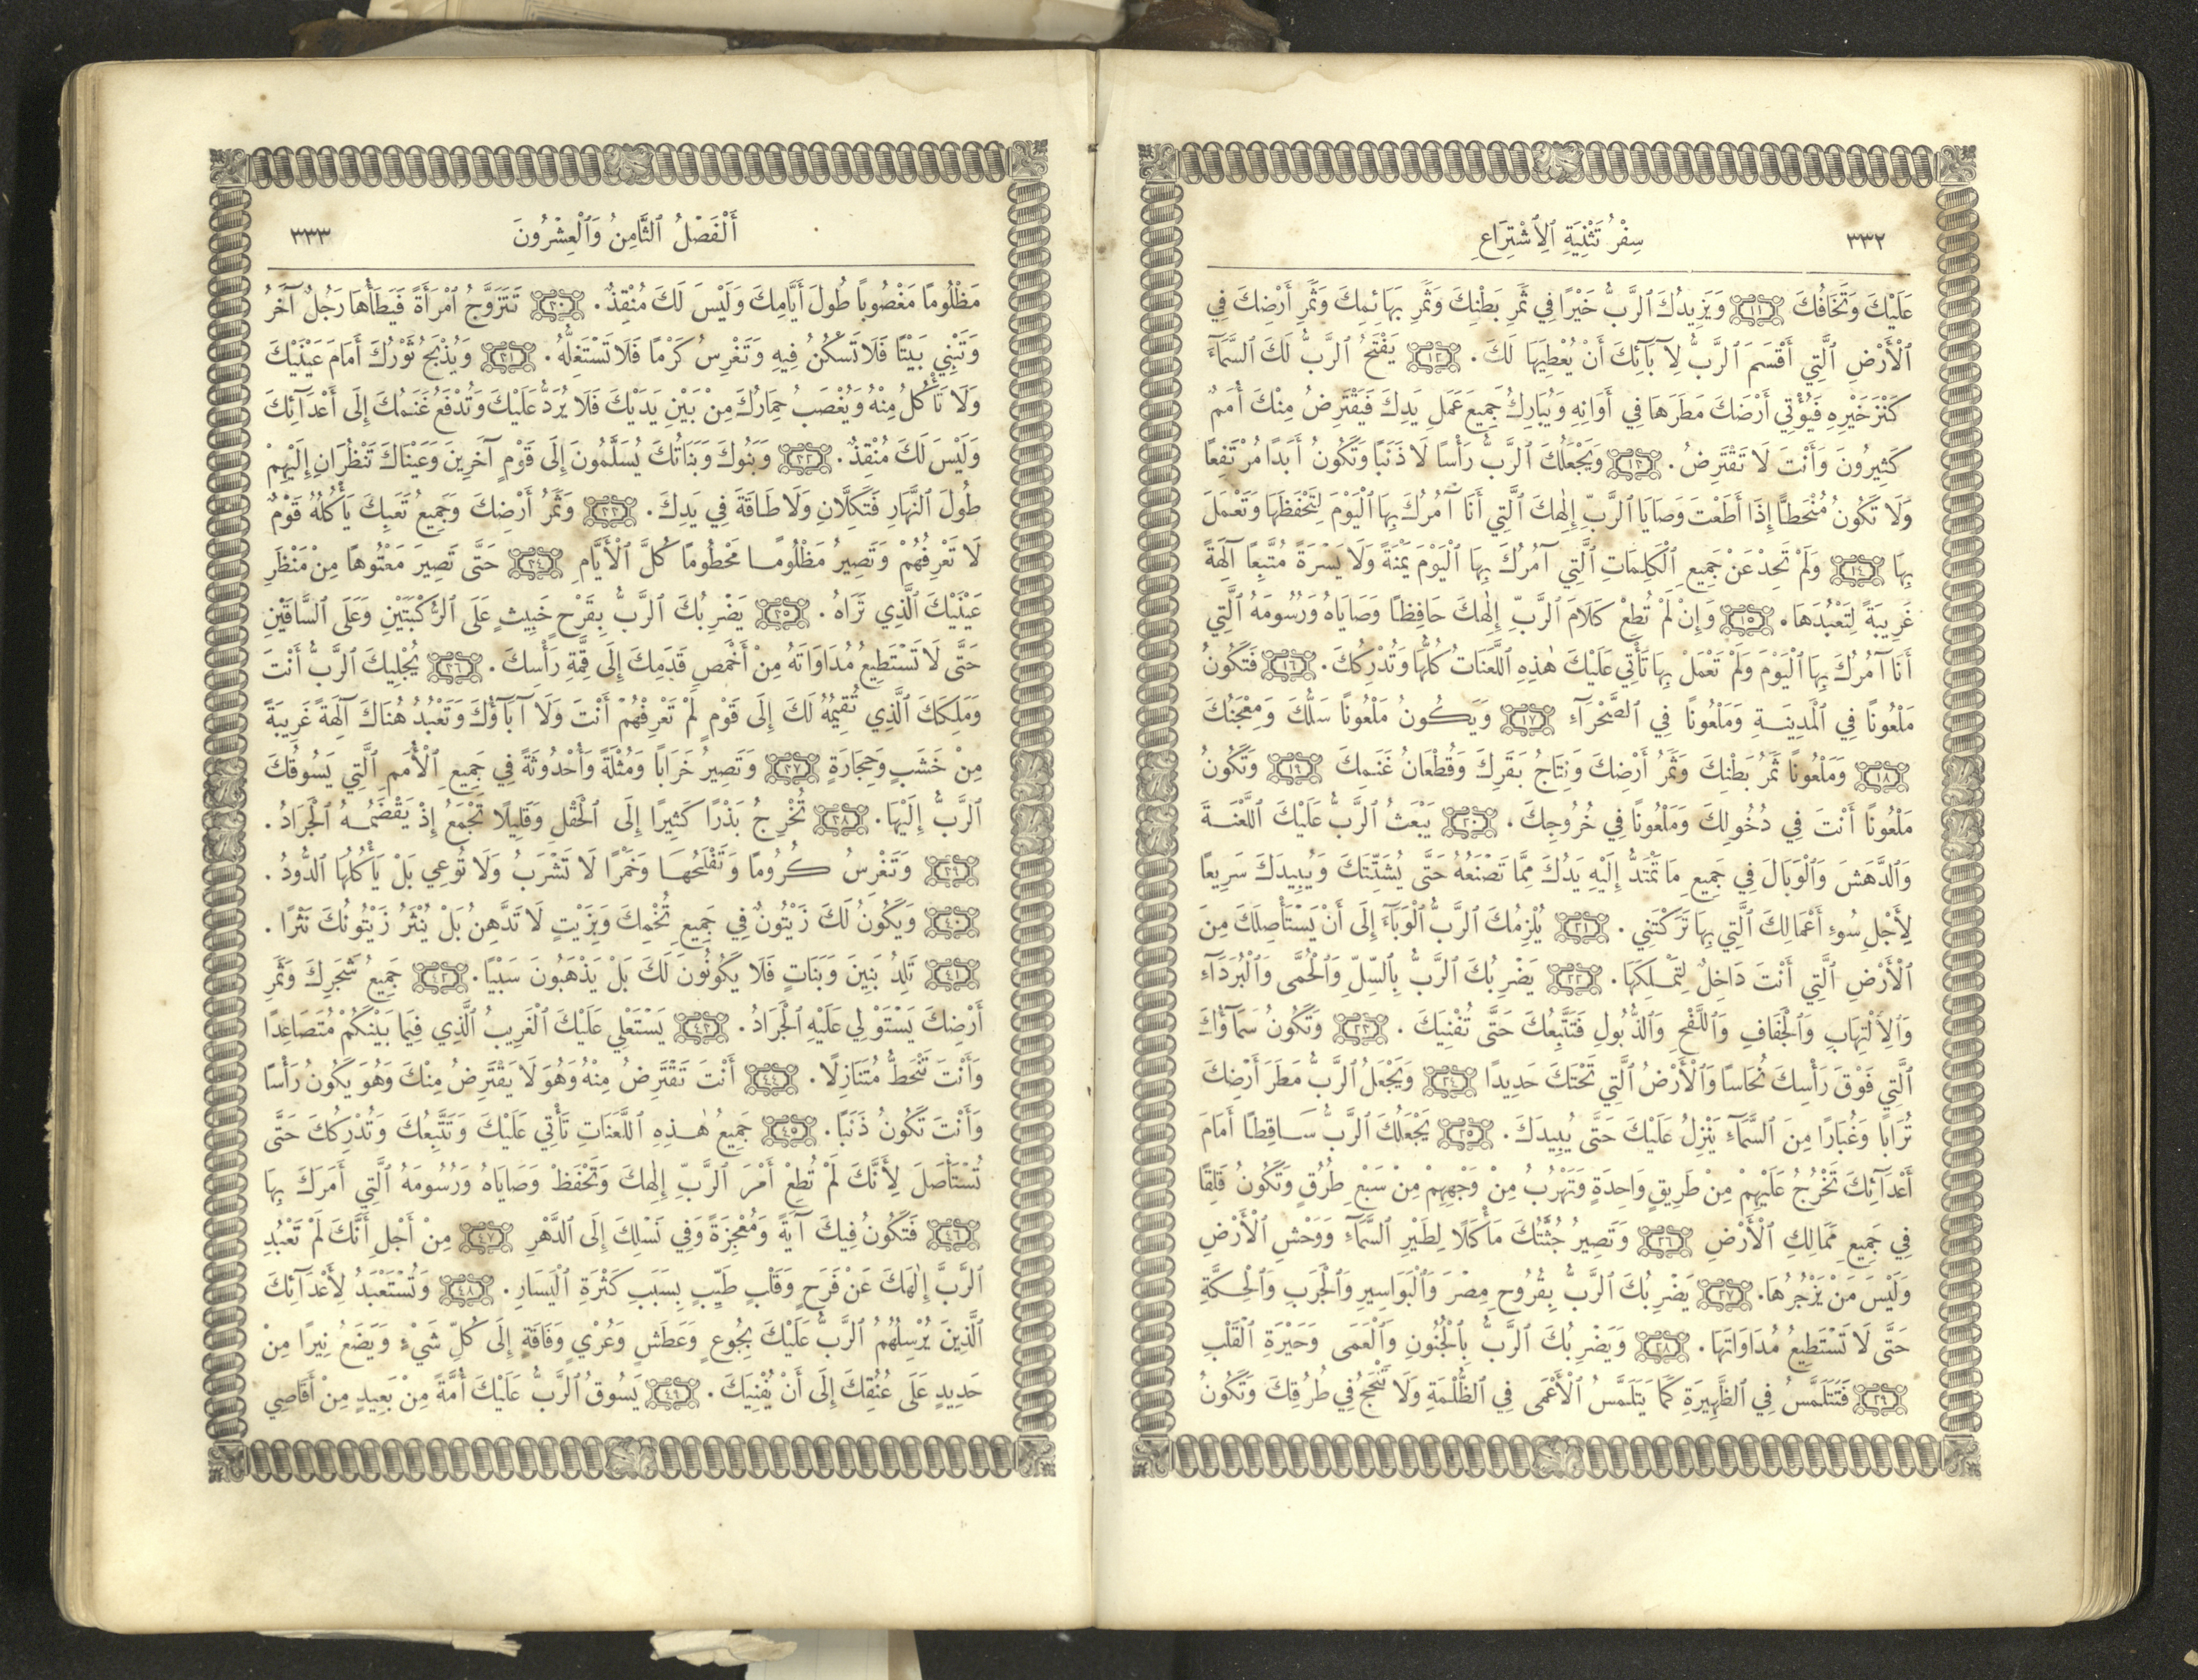 ٣٣٢
سِفْرُ تَثْنِيَةِ ٱلِٱشْتِرَاعِ
عَلَيْكَ وَتَخَافُكَ ⟨١١⟩ وَيَزِيدُكَ ٱلرَّبُّ خَيْرًا فِي ثَمَرِ بَطْنِكَ وَثَمَرِ بَهَائِمِكَ وَثَمَرِ أَرْضِكَ فِي
ٱلْأَرْضِ ٱلَّتِي أَقْسَمَ ٱلرَّبُّ لِآبَآئِكَ أَنْ يُعْطِيَهَا لَكَ . ⟨١٢⟩ يَفْتَحُ ٱلرَّبُّ لَكَ ٱلسَّمَآءَ
كَنْزَ خَيْرِهِ فَيُؤْتِي أَرْضَكَ مَطَرَهَا فِي أَوَانِهِ وَيُبَارِكُ جَمِيعَ عَمَلِ يَدِكَ فَيَقْتَرِضُ مِنْكَ أُمَمٌ
كَثِيرُونَ وَأَنْتَ لَا تَقْتَرِضُ . ⟨١٣⟩ وَيَجْعَلُكَ ٱلرَّبُّ رَأْسًا لَا ذَنَبًا وَتَكُونُ أَبَدًا مُرْتَفِعًا
وَلَا تَكُونُ مُنْحَطًّا إِذَا أَطَعْتَ وَصَايَا ٱلرَّبِّ إِلٰهِكَ ٱلَّتِي أَنَا آمُرُكَ بِهَا ٱلْيَوْمَ لِتَحْفَظَهَا وَتَعْمَلَ
بِهَا ⟨١٤⟩ وَلَمْ تَحِدْ عَنْ جَمِيعِ ٱلْكَلِمَاتِ ٱلَّتِي آمُرُكَ بِهَا ٱلْيَوْمَ يَمْنَةً وَلَا يَسْرَةً مُتَّبِعًا آلِهَةً
غَرِيبَةً لِتَعْبُدَهَا . ⟨١٥⟩ وَإِنْ لَمْ تُطِعْ كَلَامَ ٱلرَّبِّ إِلٰهِكَ حَافِظًا وَصَايَاهُ وَرُسُومَهُ ٱلَّتِي
أَنَا آمُرُكَ بِهَا ٱلْيَوْمَ وَلَمْ تَعْمَلْ بِهَا تَأْتِي عَلَيْكَ هٰذِهِ ٱللَّعَنَاتُ كُلُّهَا وَتُدْرِكُكَ . ⟨١٦⟩ فَتَكُونُ
مَلْعُونًا فِي ٱلْمَدِينَةِ وَمَلْعُونًا فِي ٱلصَّحْرَآءِ ⟨١٧⟩ وَيَكُونُ مَلْعُونًا سَلُّكَ وَمِعْجَنُكَ
⟨١٨⟩ وَمَلْعُونًا ثَمَرُ بَطْنِكَ وَثَمَرُ أَرْضِكَ وَنِتَاجُ بَقَرِكَ وَقُطْعَانُ غَنَمِكَ ⟨١٩⟩ وَتَكُونُ
مَلْعُونًا أَنْتَ فِي دُخُولِكَ وَمَلْعُونًا فِي خُرُوجِكَ . ⟨٢٠⟩ يَبْعَثُ ٱلرَّبُّ عَلَيْكَ ٱللَّعْنَةَ
وَٱلدَّهَشَ وَٱلْوَبَالَ فِي جَمِيعِ مَا تَمْتَدُّ إِلَيْهِ يَدُكَ مِمَّا تَصْنَعُهُ حَتَّى يُشَتِّتَكَ وَيُبِيدَكَ سَرِيعًا
لِأَجْلِ سُوءِ أَعْمَالِكَ ٱلَّتِي بِهَا تَرَكْتَنِي . ⟨٢١⟩ يُلْزِمُكَ ٱلرَّبُّ ٱلْوَبَآءَ إِلَى أَنْ يَسْتَأْصِلَكَ مِنَ
ٱلْأَرْضِ ٱلَّتِي أَنْتَ دَاخِلٌ لِتَمْلِكَهَا . ⟨٢٢⟩ يَضْرِبُكَ ٱلرَّبُّ بِٱلسِّلِّ وَٱلْحُمَّى وَٱلْبُرَدَآءِ
وَٱلِٱلْتِهَابِ وَٱلْجَفَافِ وَٱللَّفْحِ وَٱلذُّبُولِ فَتَتَّبِعُكَ حَتَّى تُفْنِيَكَ . ⟨٢٣⟩ وَتَكُونُ سَمَآؤُكَ
ٱلَّتِي فَوْقَ رَأْسِكَ نُحَاسًا وَٱلْأَرْضُ ٱلَّتِي تَحْتَكَ حَدِيدًا ⟨٢٤⟩ وَيَجْعَلُ ٱلرَّبُّ مَطَرَ أَرْضِكَ
تُرَابًا وَغُبَارًا مِنَ ٱلسَّمَآءِ يَنْزِلُ عَلَيْكَ حَتَّى يُبِيدَكَ . ⟨٢٥⟩ يَجْعَلُكَ ٱلرَّبُّ سَاقِطًا أَمَامَ
أَعْدَآئِكَ تَخْرُجُ عَلَيْهِمْ مِنْ طَرِيقٍ وَاحِدَةٍ وَتَهْرُبُ مِنْ وَجْهِهِمْ مِنْ سَبْعِ طُرُقٍ وَتَكُونُ قَلِقًا
فِي جَمِيعِ مَمَالِكِ ٱلْأَرْضِ ⟨٢٦⟩ وَتَصِيرُ جُثَّتُكَ مَأْكَلًا لِطَيْرِ ٱلسَّمَآءِ وَوَحْشِ ٱلْأَرْضِ
وَلَيْسَ مَنْ يَزْجُرُهَا . ⟨٢٧⟩ يَضْرِبُكَ ٱلرَّبُّ بِقُرُوحِ مِصْرَ وَٱلْبَوَاسِيرِ وَٱلْجَرَبِ وَٱلْحِكَّةِ
حَتَّى لَا تَسْتَطِيعُ مُدَاوَاتَهَا . ⟨٢٨⟩ وَيَضْرِبُكَ ٱلرَّبُّ بِٱلْجُنُونِ وَٱلْعَمَى وَحَيْرَةِ ٱلْقَلْبِ
⟨٢٩⟩ فَتَتَلَمَّسُ فِي ٱلظَّهِيرَةِ كَمَا يَتَلَمَّسُ ٱلْأَعْمَى فِي ٱلظُّلْمَةِ وَلَا تَنْجَحُ فِي طُرُقِكَ وَتَكُونُ
أَلْفَصْلُ ٱلثَّامِنُ وَٱلْعِشْرُونَ
٣٣٣
مَظْلُومًا مَغْصُوبًا طُولَ أَيَّامِكَ وَلَيْسَ لَكَ مُنْقِذٌ . ⟨٣٠⟩ تَتَزَوَّجُ ٱمْرَأَةً فَيَطَأُهَا رَجُلٌ آخَرُ
وَتَبْنِي بَيْتًا فَلَا تَسْكُنُ فِيهِ وَتَغْرِسُ كَرْمًا فَلَا تَسْتَغِلُّهُ . ⟨٣١⟩ وَيُذْبَحُ ثَوْرُكَ أَمَامَ عَيْنَيْكَ
وَلَا تَأْكُلُ مِنْهُ وَيُغْصَبُ حِمَارُكَ مِنْ بَيْنِ يَدَيْكَ فَلَا يُرَدُّ عَلَيْكَ وَتُدْفَعُ غَنَمُكَ إِلَى أَعْدَآئِكَ
وَلَيْسَ لَكَ مُنْقِذٌ . ⟨٣٢⟩ وَبَنُوكَ وَبَنَاتُكَ يُسَلَّمُونَ إِلَى قَوْمٍ آخَرِينَ وَعَيْنَاكَ تَنْظُرَانِ إِلَيْهِمْ
طُولَ ٱلنَّهَارِ فَتَكِلَّانِ وَلَا طَاقَةَ فِي يَدِكَ . ⟨٣٣⟩ وَثَمَرُ أَرْضِكَ وَجَمِيعُ تَعَبِكَ يَأْكُلُهُ قَوْمٌ
لَا تَعْرِفُهُمْ وَتَصِيرُ مَظْلُومًا مَحْطُومًا كُلَّ ٱلْأَيَّامِ ⟨٣٤⟩ حَتَّى تَصِيرَ مَعْتُوهًا مِنْ مَنْظَرِ
عَيْنَيْكَ ٱلَّذِي تَرَاهُ . ⟨٣٥⟩ يَضْرِبُكَ ٱلرَّبُّ بِقَرْحٍ خَبِيثٍ عَلَى ٱلرُّكْبَتَيْنِ وَعَلَى ٱلسَّاقَيْنِ
حَتَّى لَا تَسْتَطِيعُ مُدَاوَاتَهُ مِنْ أَخْمَصِ قَدَمِكَ إِلَى قِمَّةِ رَأْسِكَ . ⟨٣٦⟩ يُجْلِيكَ ٱلرَّبُّ أَنْتَ
وَمَلِكَكَ ٱلَّذِي تُقِيمُهُ لَكَ إِلَى قَوْمٍ لَمْ تَعْرِفْهُمْ أَنْتَ وَلَا آبَآؤُكَ وَتَعْبُدُ هُنَاكَ آلِهَةً غَرِيبَةً
مِنْ خَشَبٍ وَحِجَارَةٍ ⟨٣٧⟩ وَتَصِيرُ خَرَابًا وَمُثْلَةً وَأُحْدُوثَةً فِي جَمِيعِ ٱلْأُمَمِ ٱلَّتِي يَسُوقُكَ
ٱلرَّبُّ إِلَيْهَا . ⟨٣٨⟩ تُخْرِجُ بَذْرًا كَثِيرًا إِلَى ٱلْحَقْلِ وَقَلِيلًا تَجْمَعُ إِذْ يَقْضَمُهُ ٱلْجَرَادُ .
⟨٣٩⟩ وَتَغْرِسُ كُرُومًا وَتَفْلَحُهَا وَخَمْرًا لَا تَشْرَبُ وَلَا تُوعِي بَلْ يَأْكُلُهَا ٱلدُّودُ .
⟨٤٠⟩ وَيَكُونُ لَكَ زَيْتُونٌ فِي جَمِيعِ تُخْمِكَ وَبِزَيْتٍ لَا تَدَّهِنُ بَلْ يُنْثَرُ زَيْتُونُكَ نَثْرًا .
⟨٤١⟩ تَلِدُ بَنِينَ وَبَنَاتٍ فَلَا يَكُونُونَ لَكَ بَلْ يَذْهَبُونَ سَبْيًا . ⟨٤٢⟩ جَمِيعُ شَجَرِكَ وَثَمَرِ
أَرْضِكَ يَسْتَوْلِي عَلَيْهِ ٱلْجَرَادُ . ⟨٤٣⟩ يَسْتَعْلِي عَلَيْكَ ٱلْغَرِيبُ ٱلَّذِي فِيمَا بَيْنَكُمْ مُتَصَاعِدًا
وَأَنْتَ تَنْحَطُّ مُتَنَازِلًا . ⟨٤٤⟩ أَنْتَ تَقْتَرِضُ مِنْهُ وَهُوَ لَا يَقْتَرِضُ مِنْكَ وَهُوَ يَكُونُ رَأْسًا
وَأَنْتَ تَكُونُ ذَنَبًا . ⟨٤٥⟩ جَمِيعُ هٰذِهِ ٱللَّعَنَاتِ تَأْتِي عَلَيْكَ وَتَتَّبِعُكَ وَتُدْرِكُكَ حَتَّى
تُسْتَأْصَلَ لِأَنَّكَ لَمْ تُطِعْ أَمْرَ ٱلرَّبِّ إِلٰهِكَ وَتَحْفَظْ وَصَايَاهُ وَرُسُومَهُ ٱلَّتِي أَمَرَكَ بِهَا
⟨٤٦⟩ فَتَكُونُ فِيكَ آيَةً وَمُعْجِزَةً وَفِي نَسْلِكَ إِلَى ٱلدَّهْرِ ⟨٤٧⟩ مِنْ أَجْلِ أَنَّكَ لَمْ تَعْبُدِ
ٱلرَّبَّ إِلٰهَكَ عَنْ فَرَحٍ وَقَلْبٍ طَيِّبٍ بِسَبَبِ كَثْرَةِ ٱلْيَسَارِ . ⟨٤٨⟩ وَتُسْتَعْبَدُ لِأَعْدَآئِكَ
ٱلَّذِينَ يُرْسِلُهُمُ ٱلرَّبُّ عَلَيْكَ بِجُوعٍ وَعَطَشٍ وَعُرْيٍ وَفَاقَةٍ إِلَى كُلِّ شَيْءٍ وَيَضَعُ نِيرًا مِنْ
حَدِيدٍ عَلَى عُنُقِكَ إِلَى أَنْ يُفْنِيَكَ . ⟨٤٩⟩ يَسُوقُ ٱلرَّبُّ عَلَيْكَ أُمَّةً مِنْ بَعِيدٍ مِنْ أَقَاصِي